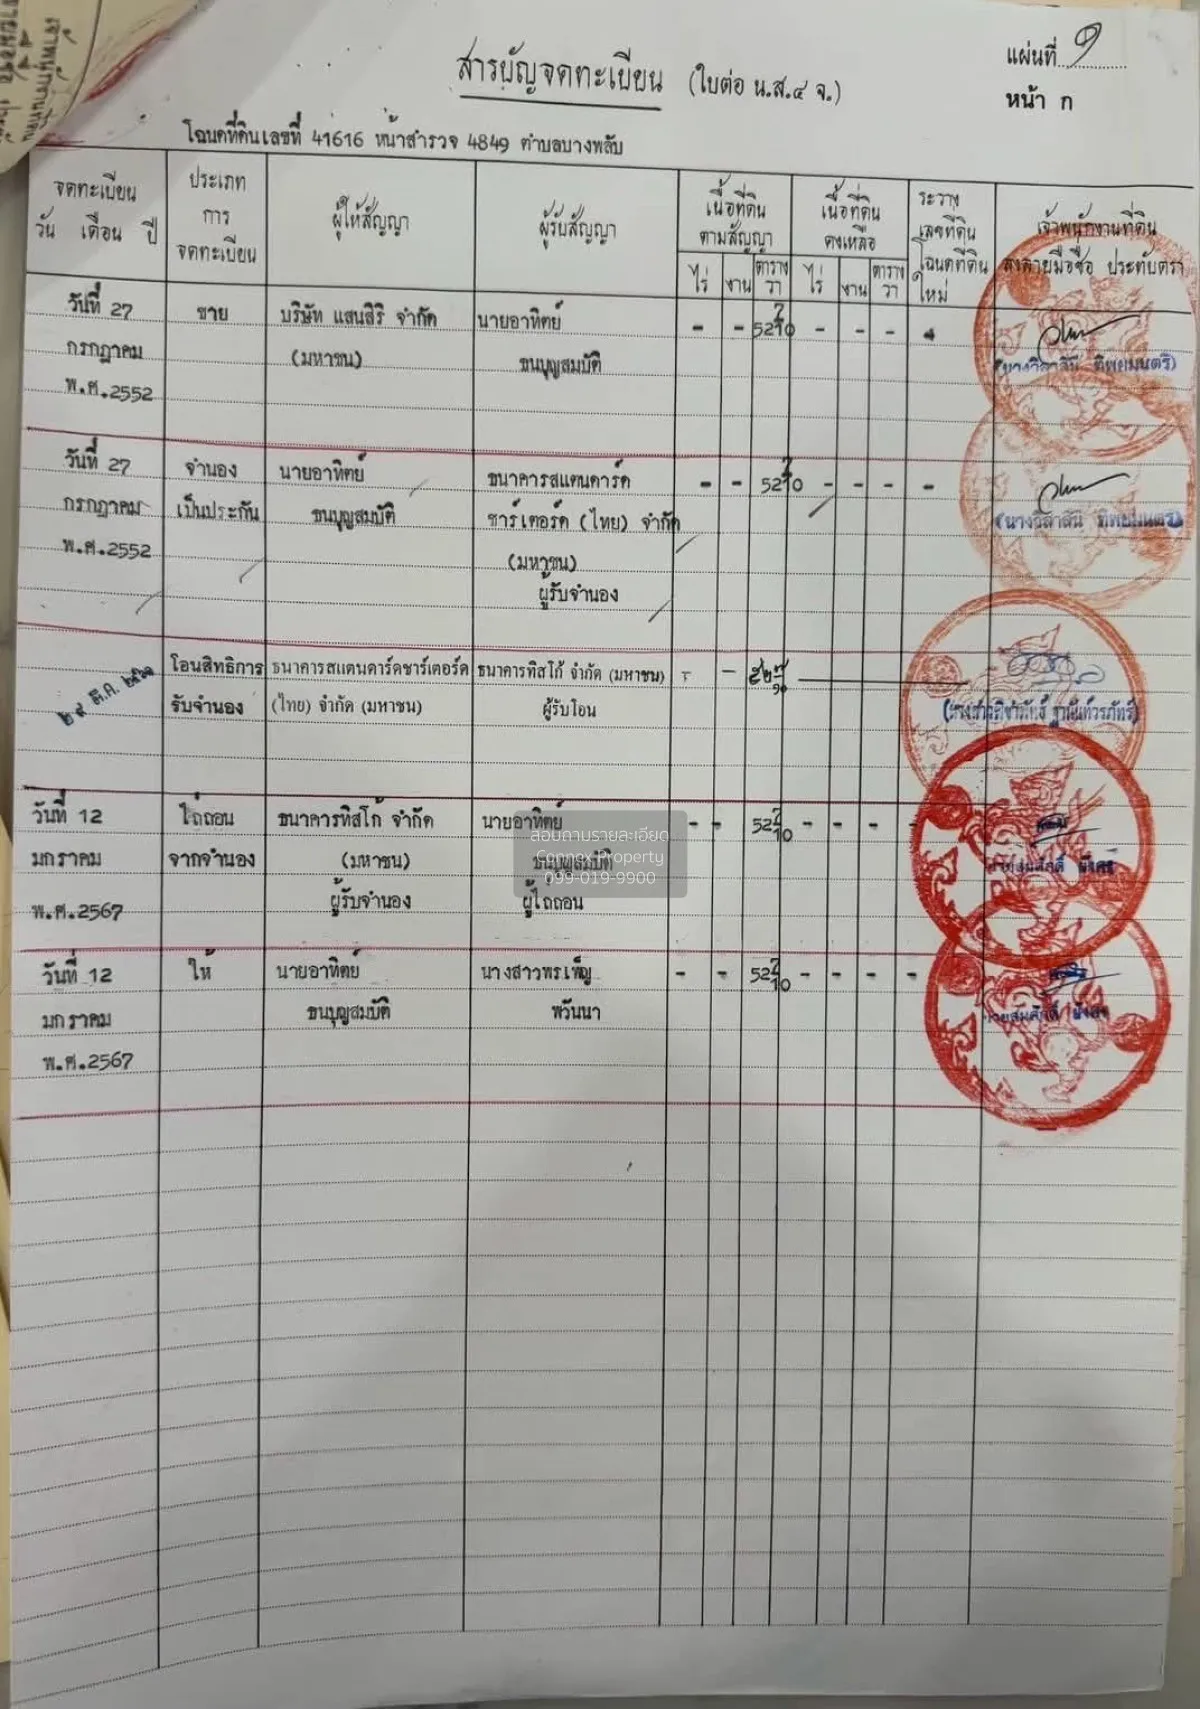 แผ่นที่ ๑
สารบัญจดทะเบียน (ใบต่อ น.ส.๔ จ.)
หน้า ก
โฉนดที่ดินเลขที่ 41616 หน้าสำรวจ 4849 ตำบลบางพลับ
จดทะเบียน วัน เดือน ปี
ประเภท การ จดทะเบียน
ผู้ให้สัญญา
ผู้รับสัญญา
เนื้อที่ดิน ตามสัญญา
เนื้อที่ดิน คงเหลือ
ระวาง เลขที่ดิน โฉนดที่ดิน ใหม่
เจ้าพนักงานที่ดิน ลงลายมือชื่อ ประทับตรา
ไร่ งาน ตาราง วา ไร่ งาน ตาราง วา
วันที่ 27 ขาย บริษัท แสนสิริ จำกัด นายอาทิตย์ - - 52 7/10 - - - -
กรกฎาคม (มหาชน) ชนบุญสมบัติ
พ.ศ.2552
วันที่ 27 จำนอง นายอาทิตย์ ธนาคารสแตนดาร์ด - - 52 7/10 - - - -
กรกฎาคม เป็นประกัน ชนบุญสมบัติ ชาร์เตอร์ด (ไทย) จำกัด
พ.ศ.2552 (มหาชน)
ผู้รับจำนอง
โอนสิทธิการ ธนาคารสแตนดาร์ดชาร์เตอร์ด ธนาคารทิสโก้ จำกัด (มหาชน) - - ๕๒ ๗/๑๐
รับจำนอง (ไทย) จำกัด (มหาชน) ผู้รับโอน
วันที่ 12 ไถ่ถอน ธนาคารทิสโก้ จำกัด นายอาทิตย์ - - 52 7/10 - - - -
มกราคม จากจำนอง (มหาชน) ชนบุญสมบัติ
พ.ศ.2567 ผู้รับจำนอง ผู้ไถ่ถอน
วันที่ 12 ให้ นายอาทิตย์ นางสาวพรเพ็ญ - - 52 7/10 - - - -
มกราคม ชนบุญสมบัติ พวันนา
พ.ศ.2567
สอบถามรายละเอียด
Connex Property
099-019-9900